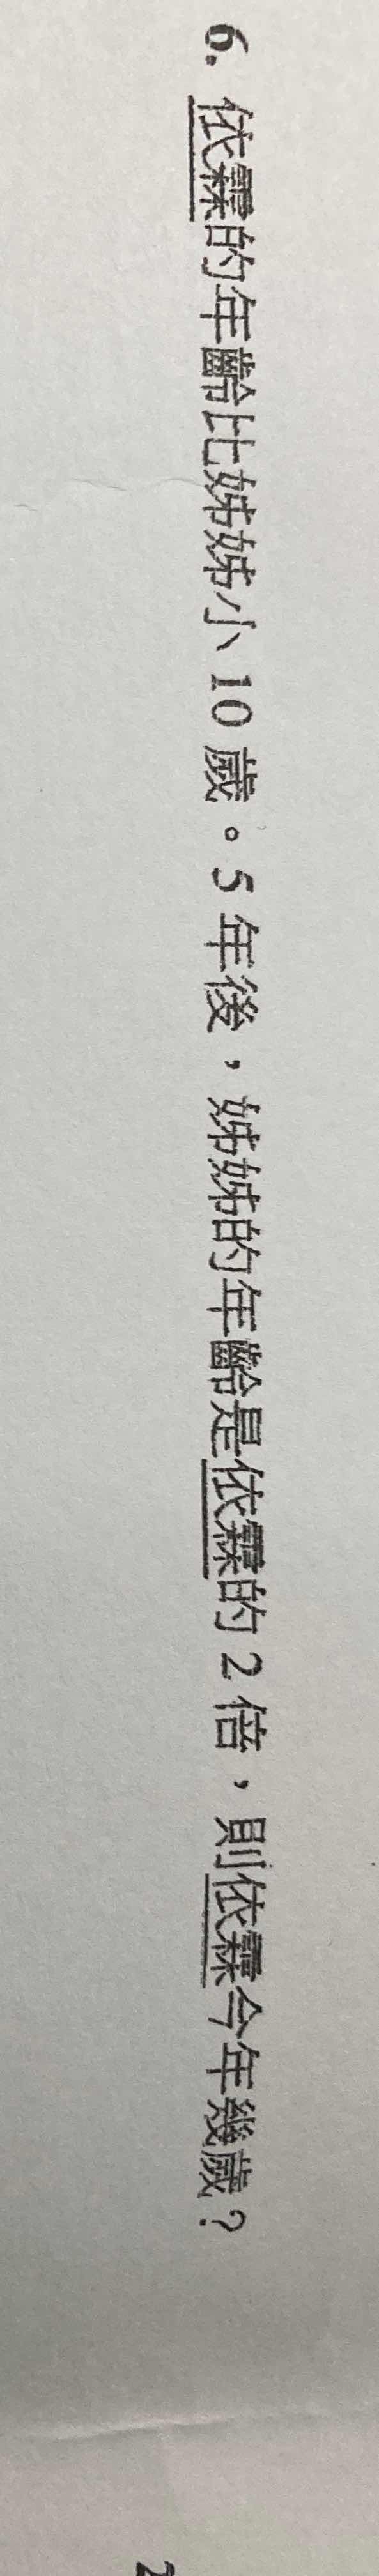 6. 依霖的年齡比姊姊小 10 歲。5 年後，姊姊的年齡是依霖的 2 倍，則依霖今年幾歲？
2